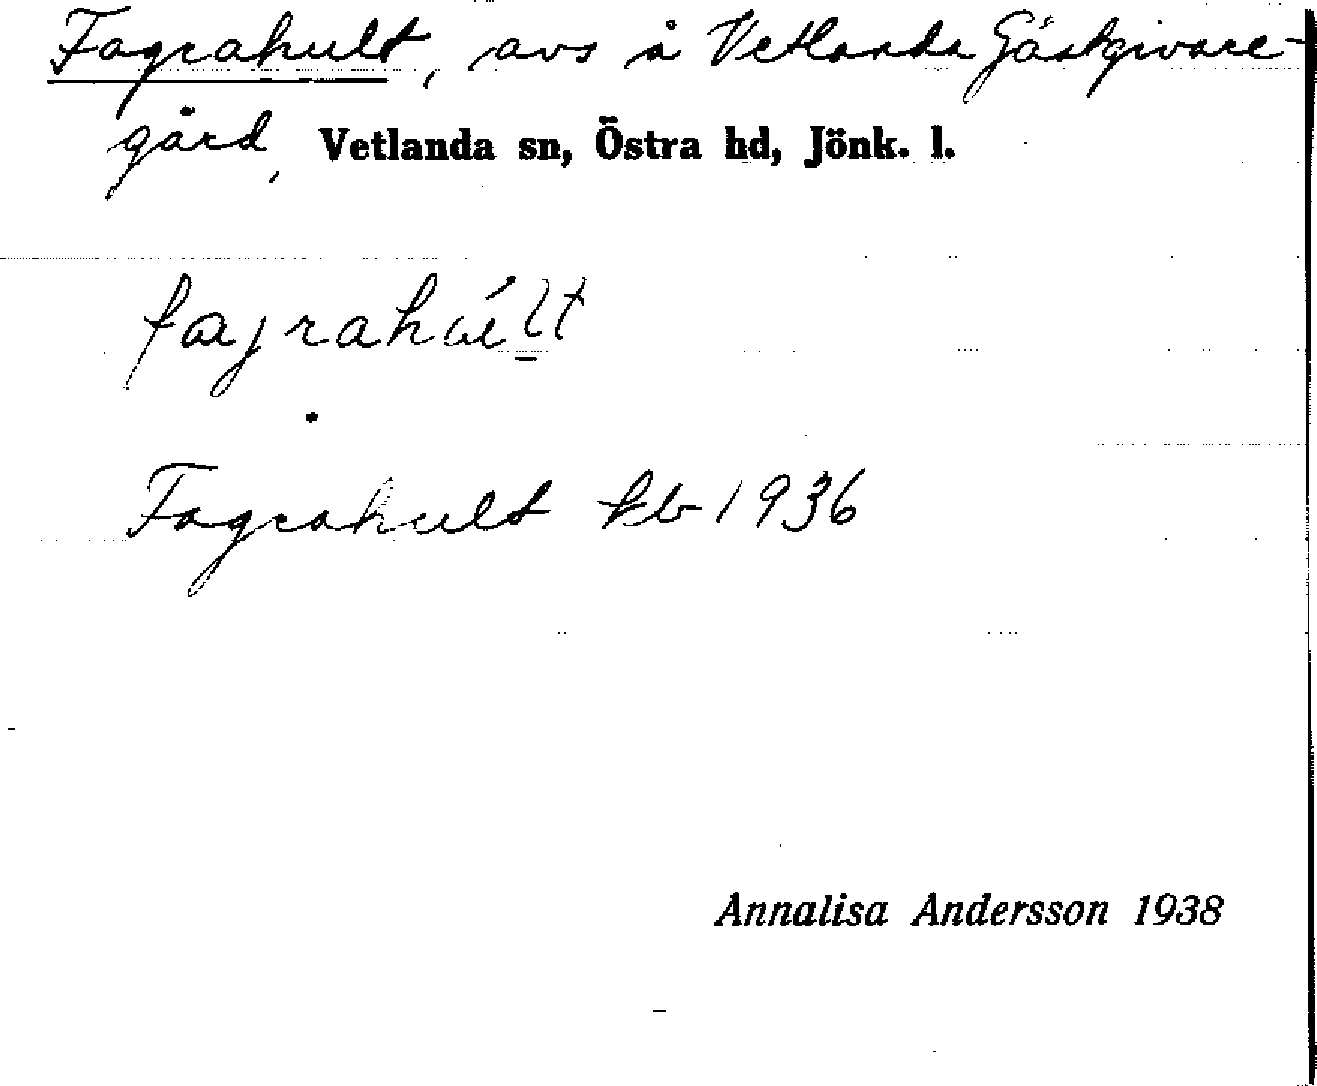 Fagrahult, avs å Vetlanda Gästgivare-
gård, Vetlanda sn, Östra hd, Jönk. l.
Fagrahult kb 1936
Annalisa Andersson 1938